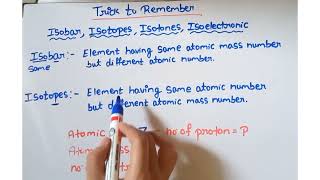 Trick to Remember
Isobar, Isotopes, Isotones, Isoelectronic
Isobar :- Element having same atomic mass number
same but different atomic number.
Isotopes:- Element having same atomic number
but different atomic mass number.
Atomic Z no of proton = P
Atomic
no